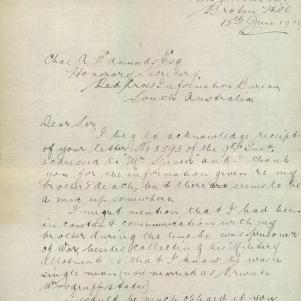 Broken Hill
15th June 191
Chas. R. Edmunds Esq
Honorary Secretary,
Red Cross Information Bureau
South Australia
Dear Sir,
I beg to acknowledge receipt
of your letter No 3593 of the 9th Inst.
addressed to Mr Spencer and thank
you for the information given re my
brother's death, but there seems to be
a mix up somewhere.
I might mention that I had been
in constant communication with my
brother during the time he was prisoner
of War, besides collecting his Military
Allotment so that I know he was a
single man (not married as Private
Woodruff states)
I would be much obliged if you